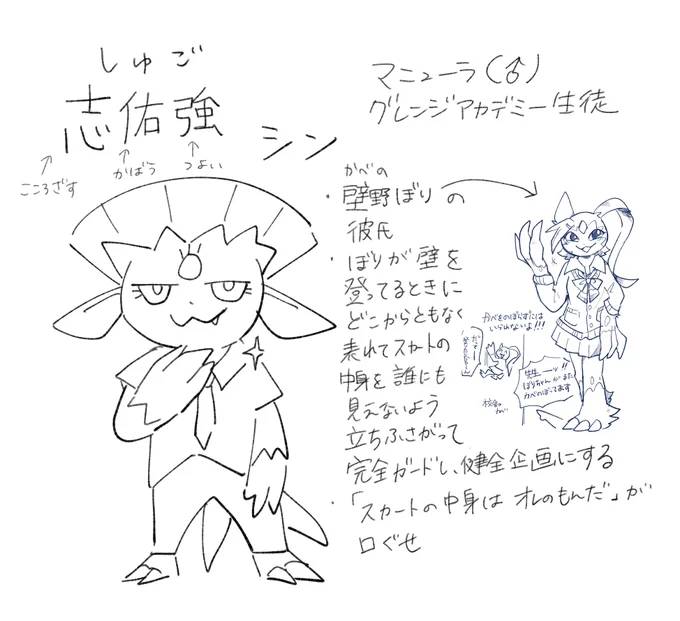 しゅご
志佑強 シン
こころざす かばう つよい
マニューラ(♂)
グレンジアカデミー生徒
かべの
・壁野ぼりの
彼氏
・ぼりが壁を
登ってるときに
どこからともなく
表れてスカートの
中身を誰にも
見えないよう
立ちふさがって
完全ガードし、健全企画にする
・「スカートの中身はオレのもんだ」が
口ぐせ
かべをのぼらずには
いられないよ!!!
先生ーッ!!
ぼりちゃんがまた
かべのぼってます